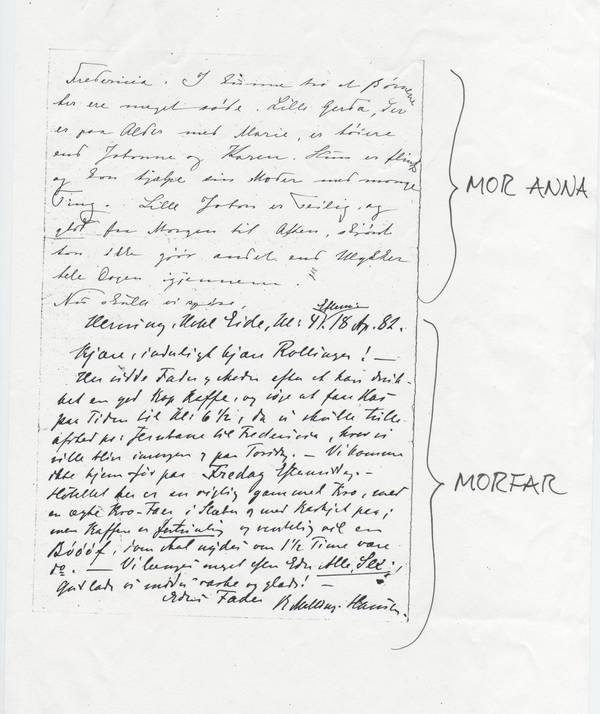 Fredericia. I kunne tro at Børnene
her ere meget søde. Lille Gerda, der
er paa Alder med Marie, er høiere
end Johanne og Karen. Hun er flink
og kan hjælpe sin Moder med mange
Ting. Lille Johan er deilig og
glad fra Morgen til Aften, skjøndt
han ikke gjør andet end Ulykker
hele Dagen igjennem.
Nu skulle vi spise,
MOR ANNA
Herning, Hotel Eide, Kl: 4½ Eftermid 18 Ap. 82.
Kjære, inderligt kjære Rollinger! —
Her sidde Fader og Moder efter at have druk-
ket en god Kop Kaffe, og søge at faae Has
paa Tiden til Kl: 6½, da vi skulle trille
afsted pr: Jernbane til Fredericia, hvor vi
ville blive imorgen og paa Torsdag. — Vi komme
ikke hjem før paa Fredag Eftermiddag. —
Hotellet her er en rigtig gammel Kro, med
en ægte Kro- i Stadsen og med Kasket paa;
men Kaffen er fortrinlig og ventelig vil en
Böööf, som skal nydes om 1½ Time være
do. — Vi længes meget efter Eder Alle, Sex;
Gud lade os mødes raske og glade! —
Eders Fader
MORFAR